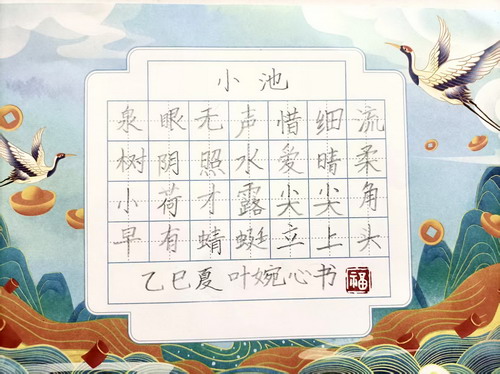 小池
泉眼无声惜细流
树阴照水爱晴柔
小荷才露尖尖角
早有蜻蜓立上头
乙巳夏 叶婉心书 福